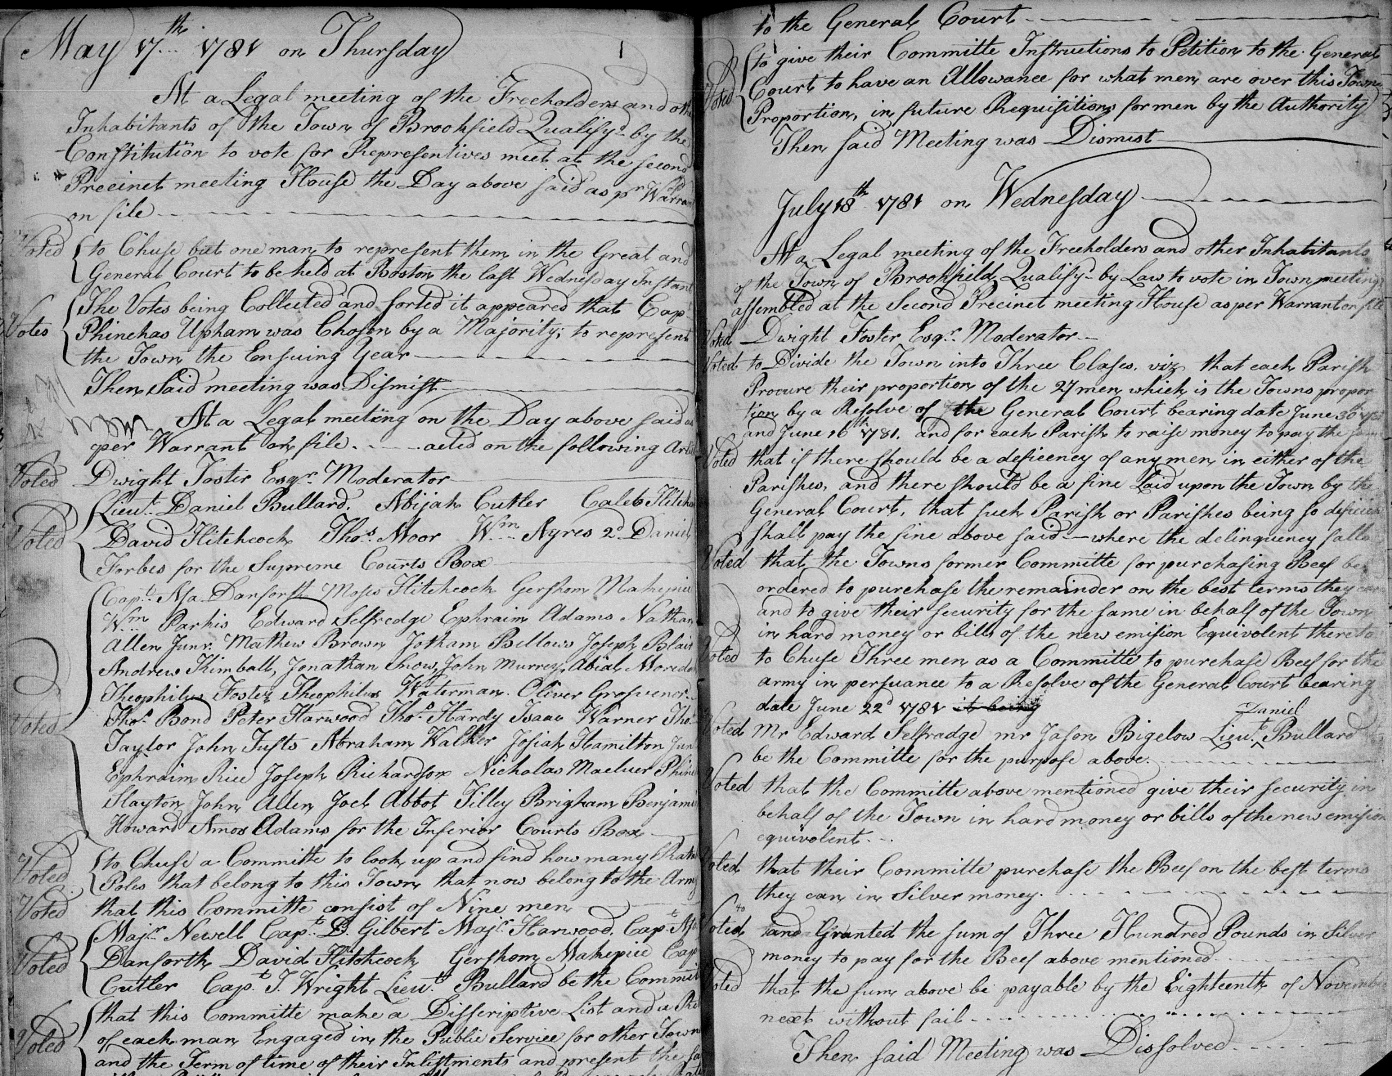 May 17th 1781 on Thursday
At a Legal meeting of the Freeholders and
Inhabitants of the Town of Brookfield Qualify.d by the
Constitution to vote for Representives meet at the second
Precinct meeting House the Day above said as pr
on file
Voted
to Chuse but one man to represent them in the Great and
General Court to be held at Boston the last Wednesday Instant
Votes
The Votes being Collected and sorted it appeared that Cap
Phinehas Upham was Chosen by a Majority; to represent
the Town the Ensuing Year
Then Said meeting was Dismist
At a Legal meeting on the Day above said
per Warrant on file acted on the following
Voted
Dwight Foster Esqr. Moderator
Voted
Lieut. Daniel Bullard. Abijah Cutler Caleb
David Hitchcock Thos. Moor Wm Ayres 2d Daniel
Forbes for the Supreme Courts Box
Voted
Capt. Asa Danforth Moses Hitchcock Gershom Makepiece
Wm Parkis Edward Selfredge Ephraim Adams Nathan
Allen Junr. Mathew Brown Jotham Bellows Joseph Blair
Andrew Kimball, Jonathan Snow, John Murrey, Abial
Theophilus Foster Theophilus Waterman. Oliver Grosvenor
Thos. Bond Peter Harwood Thos. Hardy Isaac Warner Thos
Taylor John Tufts Abraham Walker Josiah Hamilton Jun
Ephraim Rice Joseph Richardson Nicholas Macluer
Slayton John Allen Joel Abbot Tilley Brigham Benjamin
Howard Amos Adams for the Inferior Courts Box
Voted
to Chuse a Committe to look up and find how many
Poles that belong to this Town that now belong to the Army
Voted
that this Committe consist of Nine men
Voted
Majr. Newell Capt. D. Gilbert Majr. Harwood, Capt Asa
Danforth David Hitchcock Gershom Makepiece Capt
Cutler Capt. J. Wright Lieut. Bullard be the Commit
Voted
that this Committe make a Discriptive List and a
of each man Engaged in the Public Service for other Town
and the Term of time of their Inlistments and present the
to the General Court
Voted
to give their Committe Instructions to Petition to the General
Court to have an Allowance for what men are over this Town
Proportion, in future Requisitions for men by the Authority
Then said Meeting was Dismist
July 18th 1781 on Wednesday
At a Legal meeting of the Freeholders and other Inhabitants
of the Town of Brookfield, Qualify.d by Law to vote in Town meeting
assembled at the Second Precinct meeting House as per Warrant on file
Voted
Dwight Foster Esqr. Moderator
Voted
to Divide the Town into Three Clases, viz that each Parish
Procure their proportion of the 27 men which is the Towns propor
tion by a Resolve of the General Court bearing date June 30
and June 16 1781. and for each Parish to raise money to pay the
Voted
that if there should be a deficency of any men in either of the
Parishes, and there should be a fine Laid upon the Town by the
General Court, that such Parish or Parishes being so deficent
shall pay the fine above said - where the delinquency falls
Voted
that the Towns former Committe for purchasing Beef be
ordered to purchase the remainder on the best terms they can
and to give their security for the same in behalf of the Town
in hard money or bills of the new emision Equivolent there to
Voted
to Chuse Three men as a Committe to purchase Beef for the
army in persuance to a Resolve of the General Court bearing
date June 22d 1781
Voted
Mr Edward Selfradge mr Jason Bigelow Lieut. Daniel Bullard
be the Committe for the purpose above.
Voted
that the Committe above mentioned give their security in
behalf of the Town in hard money or bills of the new emision
equivolent
Voted
that their Committe purchase the Beef on the best terms
they can in Silver money.
Voted to
and Granted the sum of Three Hundred Pounds in Silver
money to pay for the Beef above mentioned
Voted
that the sum above be payable by the Eighteenth of November
next without fail
Then said Meeting was Dissolved